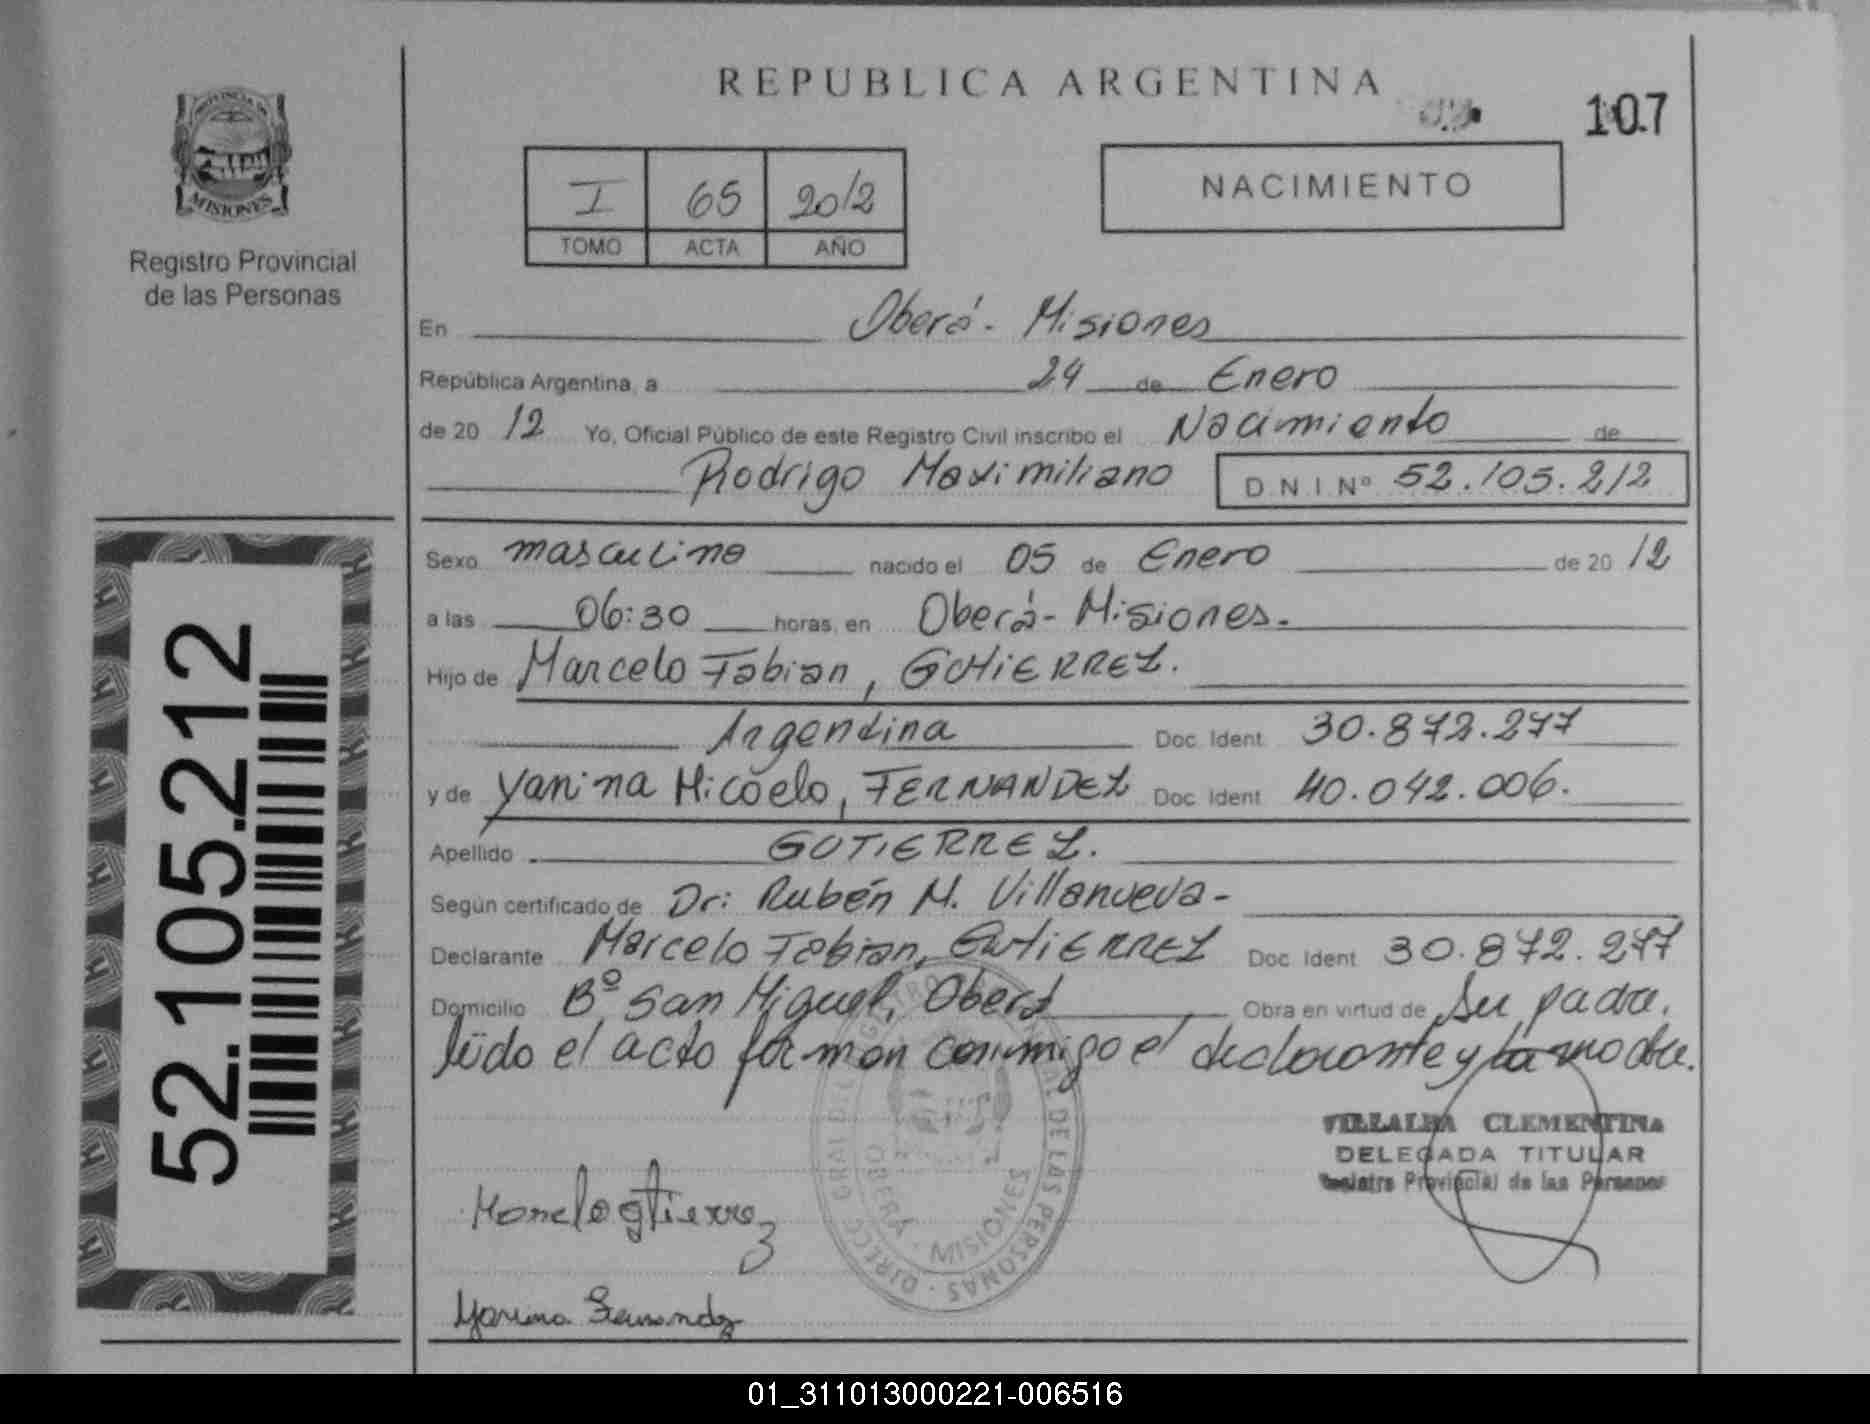 REPUBLICA ARGENTINA
107
PROVINCIA DE
MISIONES
Registro Provincial
de las Personas
I 65 2012
TOMO ACTA AÑO
NACIMIENTO
En Oberá - Misiones
República Argentina, a 24 de Enero
de 20 12 Yo, Oficial Público de este Registro Civil inscribo el Nacimiento de
Rodrigo Maximiliano D.N.I. Nº 52.105.212
Sexo masculino nacido el 05 de Enero de 20 12
a las 06:30 horas, en Oberá - Misiones.
Hijo de Marcelo Fabian, GUTIERREZ.
Argentina Doc. Ident. 30.872.277
y de Yanina Micaela, FERNANDEZ Doc. Ident. 40.042.006.
Apellido GUTIERREZ.
Según certificado de Dr: Rubén M. Villanueva -
Declarante Marcelo Fabian, GUTIERREZ Doc. Ident. 30.872.277
Domicilio Bº San Miguel, Oberá Obra en virtud de Su padre.
leido el acta forman conmigo el declarante y la madre.
52.105.212
VILLALBA CLEMENTINA
DELEGADA TITULAR
Registro Provincial de las Personas
DE LAS PERSONAS
OBERÁ - MISIONES
Marcelo gtierrez
Yanina Fernandez
01_311013000221-006516